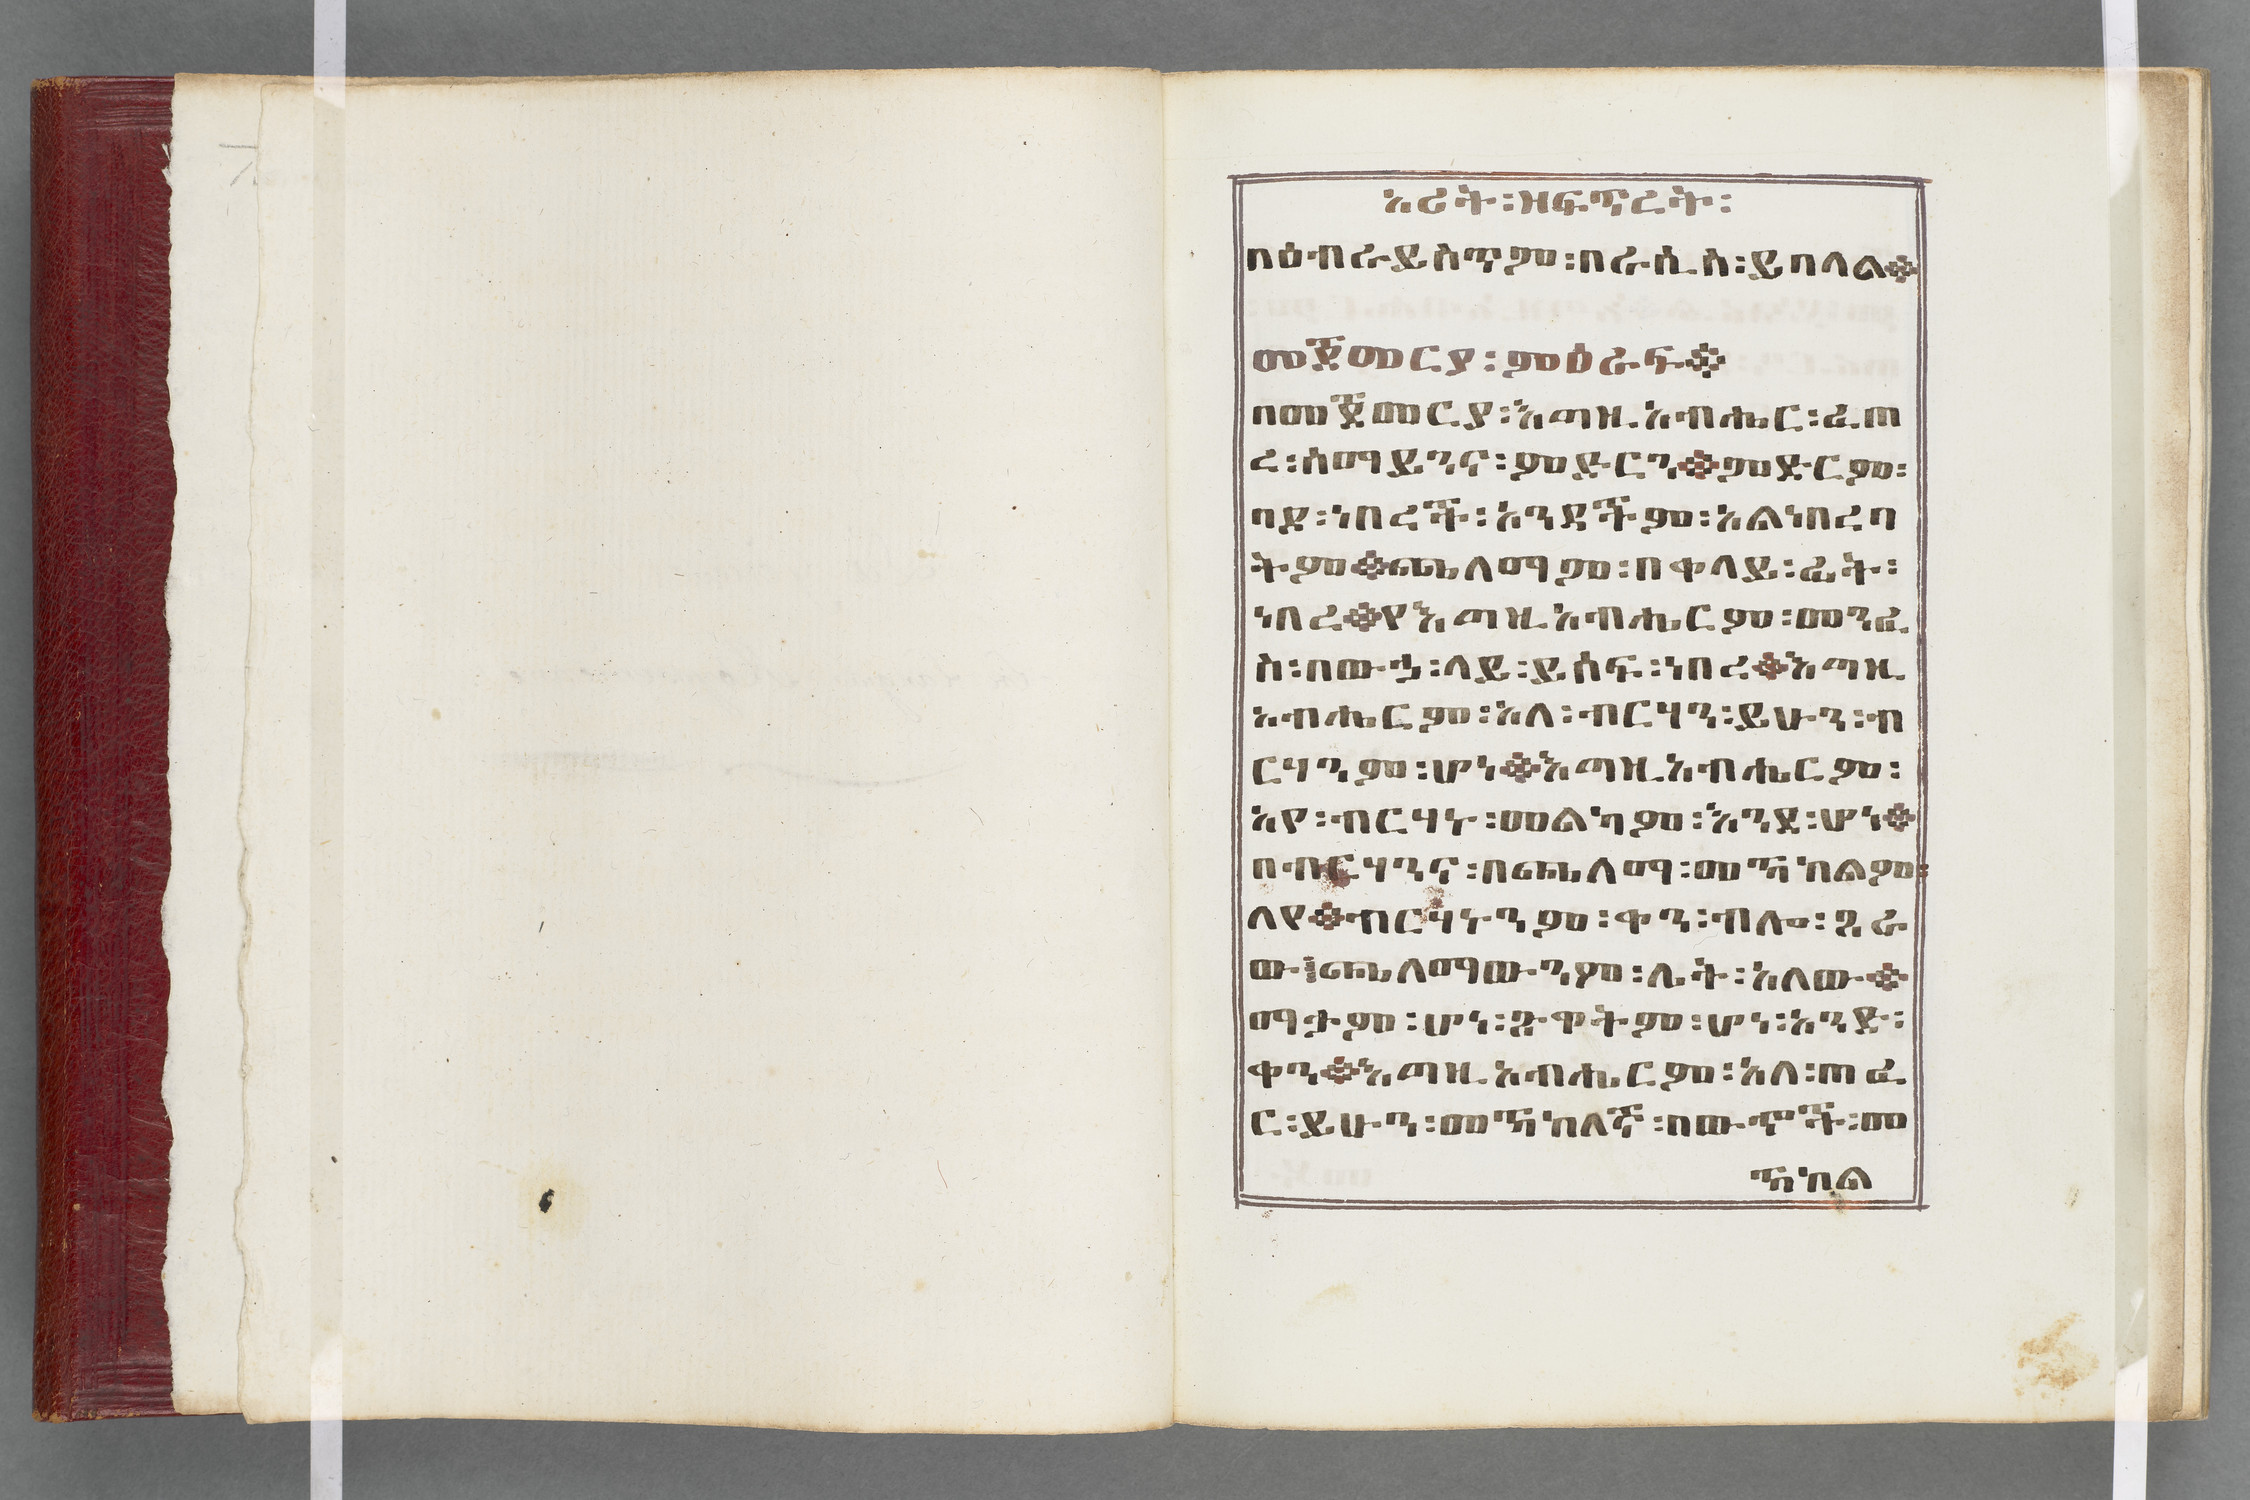 ኦሪት፡ዘፍጥረት፡
በዕብራይስጥም፡በራሲስ፡ይባላል፨
መጀመርያ፡ምዕራፍ፨
በመጀመርያ፡እግዚአብሔር፡ፈጠ
ረ፡ሰማይንና፡ምድርን፨ምድርም፡
ባዶ፡ነበረች፡አንዳችም፡አልነበረባ
ትም፨ጨለማም፡በቀላይ፡ፊት፡
ነበረ፨የእግዚአብሔርም፡መንፈ
ስ፡በውኃ፡ላይ፡ይሰፍ፡ነበረ፨እግዚ
አብሔርም፡አለ፡ብርሃን፡ይሁን፡ብ
ርሃንም፡ሆነ፨እግዚአብሔርም፡
አየ፡ብርሃኑ፡መልካም፡እንደ፡ሆነ፨
በብርሃንና፡በጨለማ፡መኻከልም፡
ለየ፨ብርሃኑንም፡ቀን፡ብሎ፡ጠራ
ው፤ጨለማውንም፡ሌት፡አለው፨
ማታም፡ሆነ፡ጧትም፡ሆነ፡አንድ፡
ቀን፨እግዚአብሔርም፡አለ፡ጠፈ
ር፡ይሁን፡መኻከለኛ፡በውሦች፡መ
ኻከል